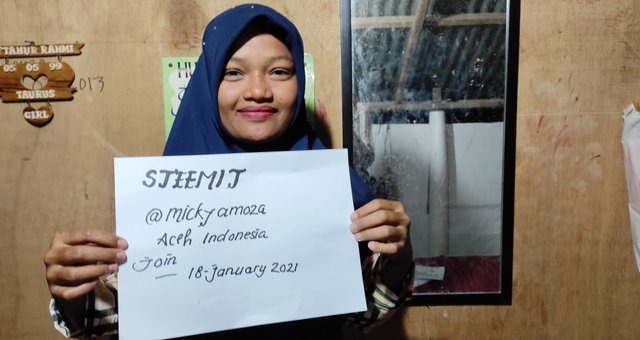 FTAHUR RAHMI
05 05 99
TAURUS
GIRL
013
STEEMIT
@mickyamoza
Aceh Indonesia
Join
18-January 2021